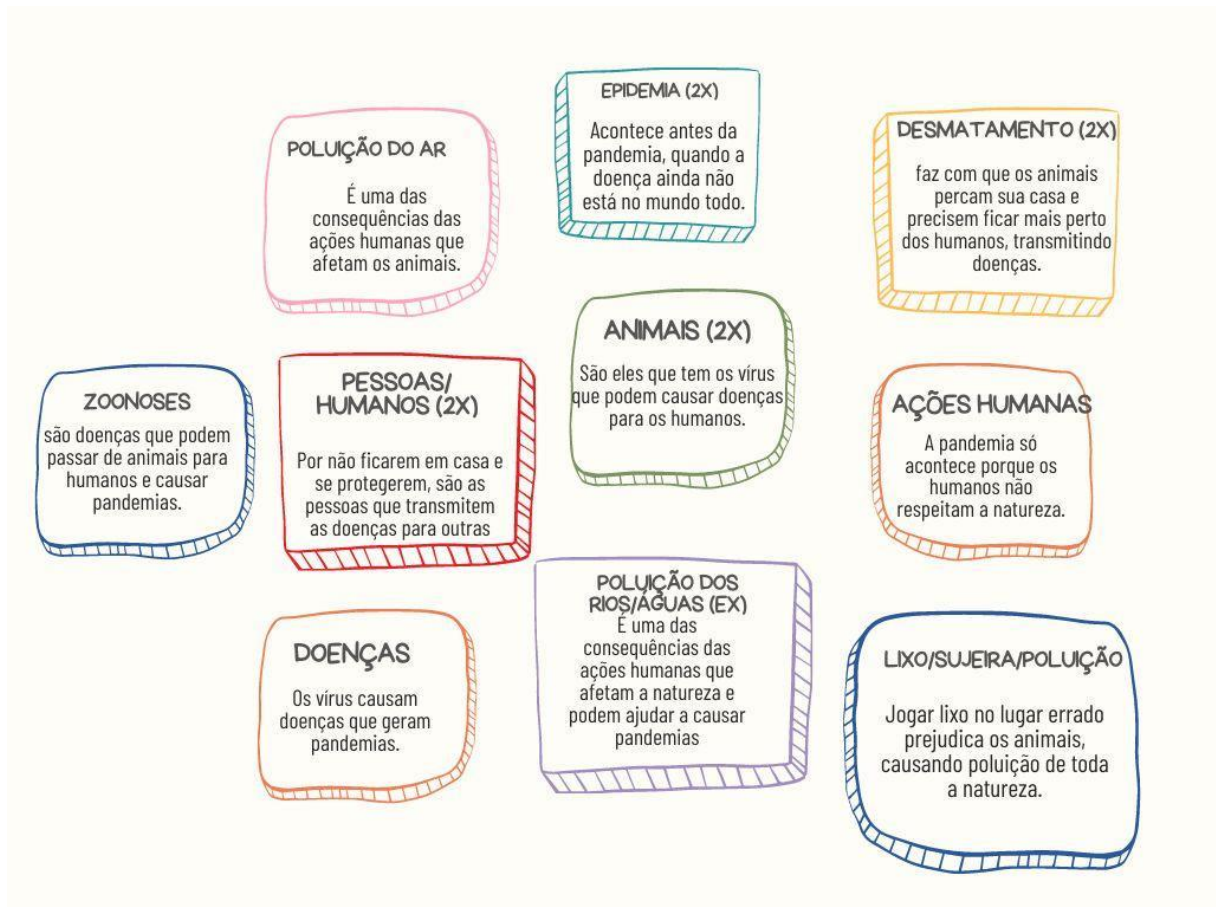 POLUIÇÃO DO AR
É uma das
consequências das
ações humanas que
afetam os animais.
EPIDEMIA (2X)
Acontece antes da
pandemia, quando a
doença ainda não
está no mundo todo.
DESMATAMENTO (2X)
faz com que os animais
percam sua casa e
precisem ficar mais perto
dos humanos, transmitindo
doenças.
ZOONOSES
são doenças que podem
passar de animais para
humanos e causar
pandemias.
PESSOAS/
HUMANOS (2X)
Por não ficarem em casa e
se protegerem, são as
pessoas que transmitem
as doenças para outras
ANIMAIS (2X)
São eles que tem os vírus
que podem causar doenças
para os humanos.
AÇÕES HUMANAS
A pandemia só
acontece porque os
humanos não
respeitam a natureza.
DOENÇAS
Os vírus causam
doenças que geram
pandemias.
POLUIÇÃO DOS
RIOS/ÁGUAS (EX)
É uma das
consequências das
ações humanas que
afetam a natureza e
podem ajudar a causar
pandemias
LIXO/SUJEIRA/POLUIÇÃO
Jogar lixo no lugar errado
prejudica os animais,
causando poluição de toda
a natureza.